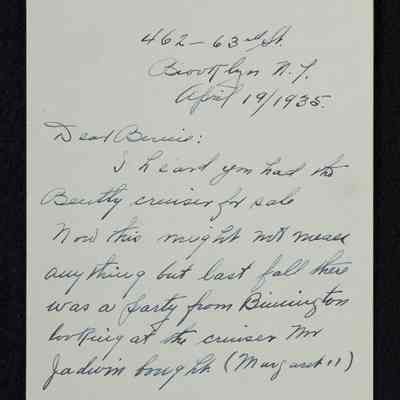 462 - 63rd St.
Brooklyn N.Y.
April 19/1935.
Dear Bernie:
I heard you had the
Beatty cruiser for sale
Now this might not mean
anything but last fall there
was a party from Binnington
looking at the cruiser Mr
Jadwin bought (Margaret II)